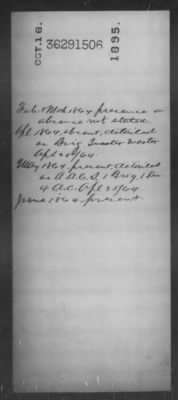 OCT. 16.
36291506
1895.
Feb. & Mch 1864 presence or
absence not stated.
Apl 1864, absent, detailed
as Brig Quarter Master
Apl 20/64.
May 1864, present, detailed
as A.A.C.S. 1 Brig, 1 Div.
4 A.C. Apl 25/64.
June 1864, present.